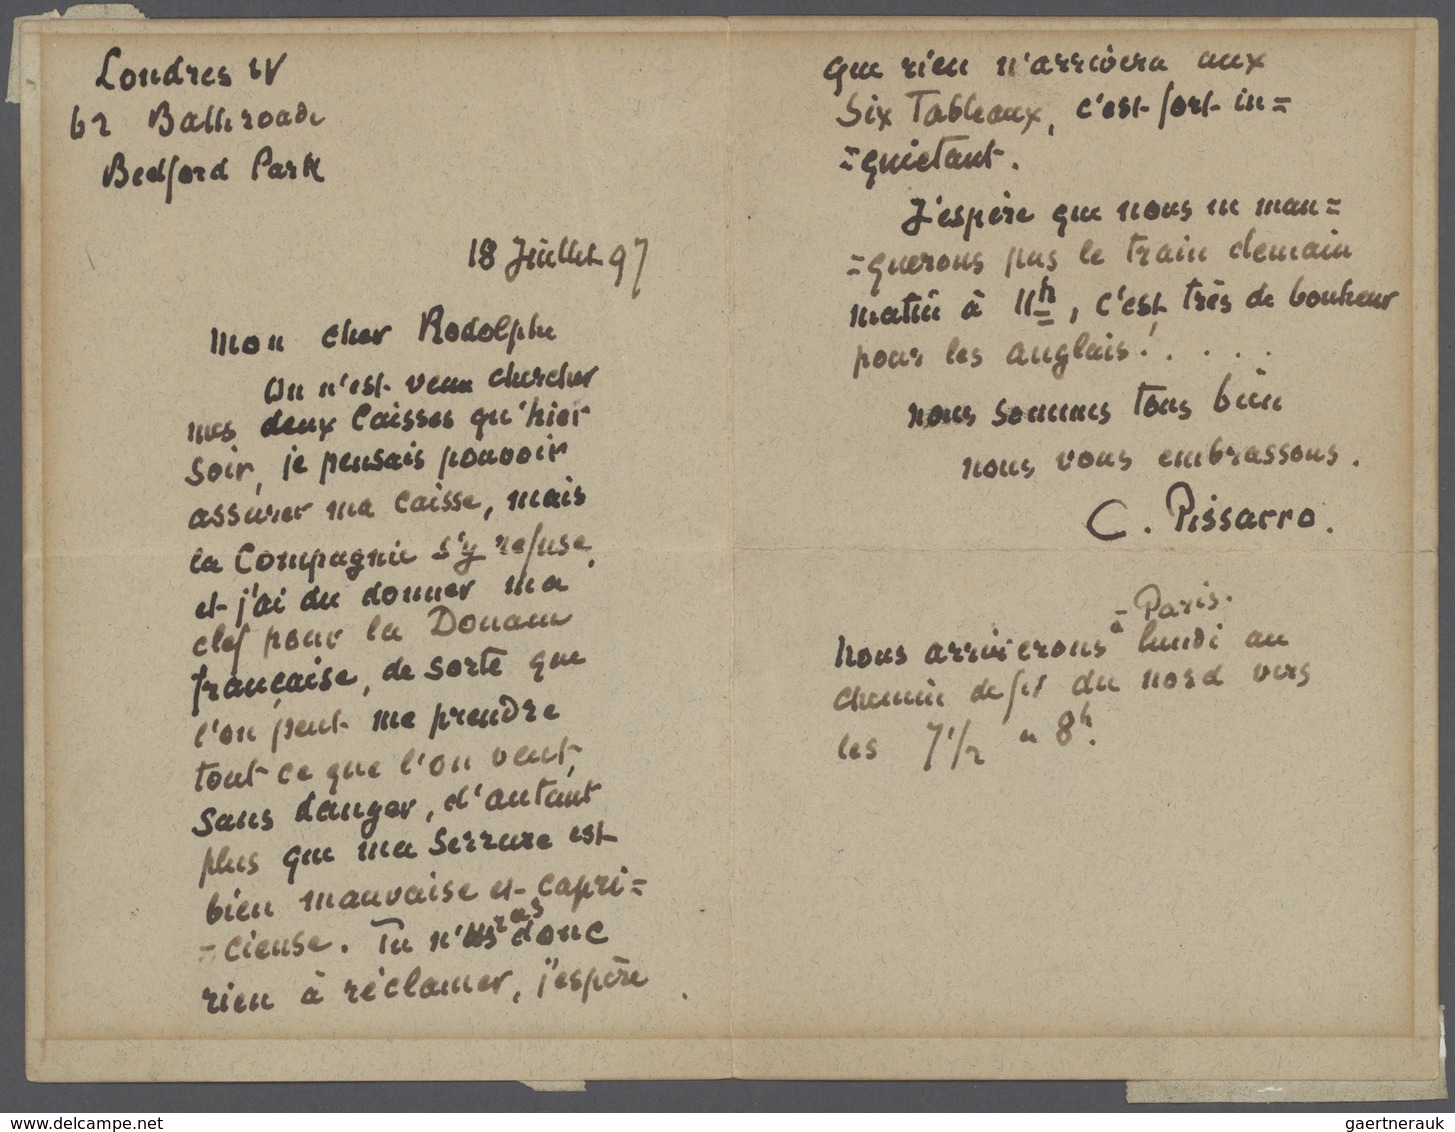 Londres W
62 Bath roade
Bedford Park
18 Juillet 97
Mon cher Rodolphe
On n'est venu chercher
mes deux caisses qu'hier
soir, je pensais pouvoir
assurer ma caisse, mais
la Compagnie s'y refuse
et j'ai du donner ma
clef pour la Douane
française, de sorte que
l'on peut me prendre
tout ce que l'on veut,
sans danger, d'autant
plus que ma serrure est
bien mauvaise et capri=
=cieuse. Tu n'auras donc
rien à réclamer, j'espère
que rien n'arrivera aux
Six Tableaux, c'est fort in=
=quietant.
J'espère que nous ne man=
=querons pas le train demain
matin à 11h, c'est très de bonheur
pour les anglais! . . . .
nous sommes tous bien
nous vous embrassons.
C. Pissarro.
Nous arriverons à Paris lundi au
chemin de fer du nord vers
les 7 1/2 a 8h.
delcampe.net
gaertnerauk